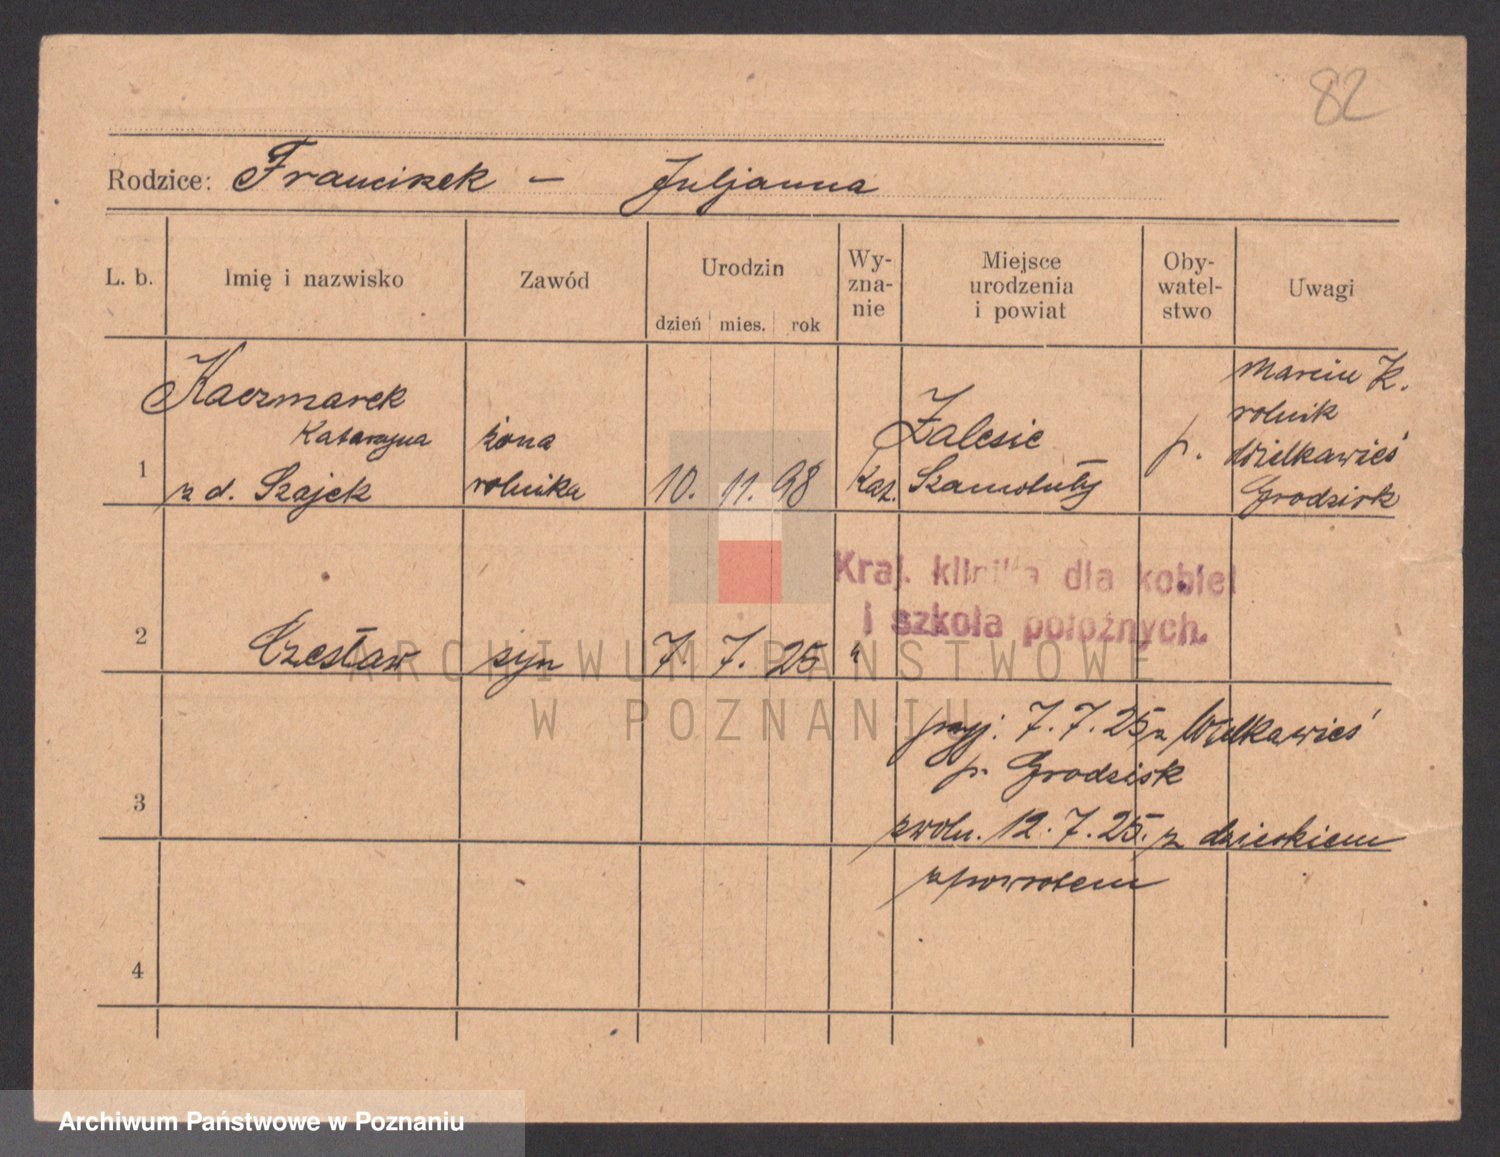 82
Rodzice: Franciszek – Juljanna
L. b. Imię i nazwisko Zawód Urodzin dzień mies. rok Wy-zna-nie Miejsce urodzenia i powiat Oby-watel-stwo Uwagi
1 Kaczmarek Katarzyna z d. Szajek
żona rolnika
10. 11. 98
Kat.
Zalesie Szamotuły
p.
Marcin K.
rolnik
Wielkawieś
Grodzisk
Kraj. klinika dla kobiet
i szkoła położnych.
2 Czesław syn 7. 7. 25 "
ARCHIWUM PAŃSTWOWE
W POZNANIU
przyj. 7.7.25 z Wielkawieś
p. Grodzisk
3
zwoln. 12.7.25. z dzieckiem
zpowrotem
4
Archiwum Państwowe w Poznaniu